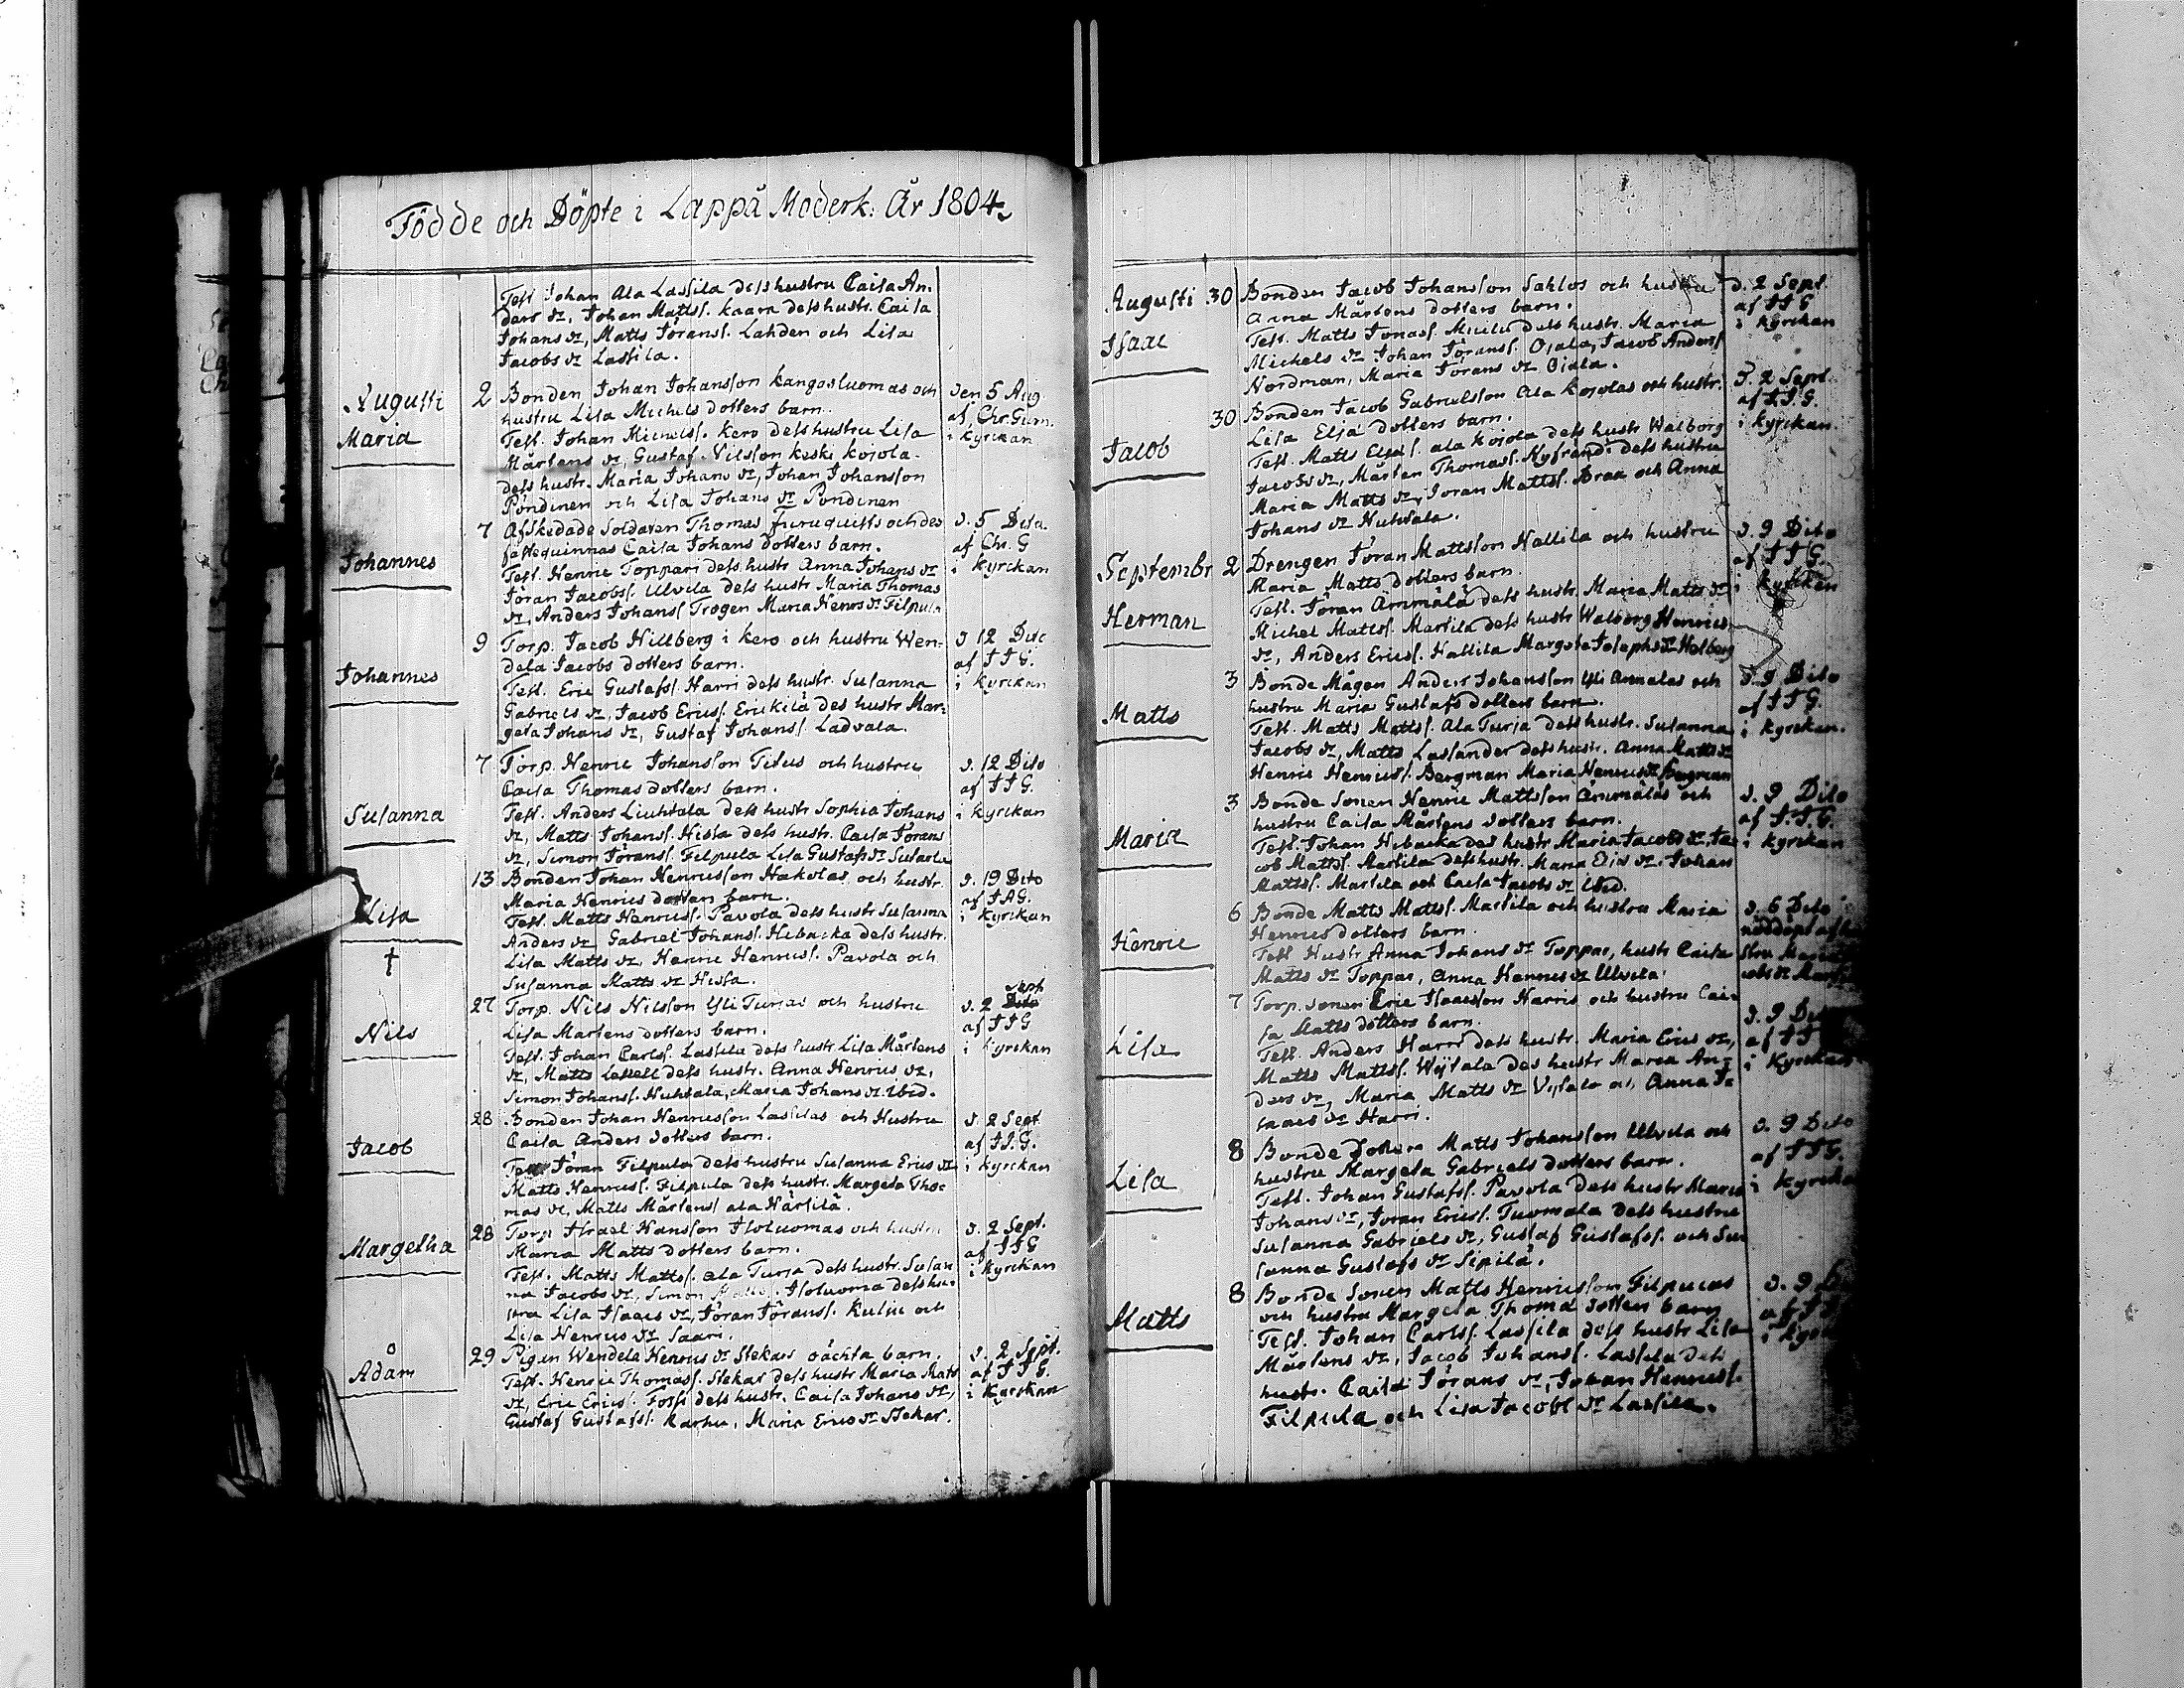 Födde och Döpte i Lappå Moderk: År 1804.
Test Johan Ala Lassila dess hustru Caisa An-
ders dr, Johan Mattss. Kaara dess hustr. Caisa
Johans dr, Matts Jöranss. Lahden och Lisa
Jacobs dr Lassila.
Augusti 2 Bonden Johan Johansson Kangasluomas och den 5 Aug
hustru Lisa Michels dotters barn. af Chr. Gum.
Maria Test. Johan Michelss. Kero dess hustru Lisa i Kyrckan
Mårtens dr, Gustaf Nilsson Keski Kojola
dess hustr. Maria Johans dr, Johan Johansson
Pöndinen och Lisa Johans dr Pöndinen
7 Afskedade Soldaten Thomas Furuquists och des d. 5 Dito
fästequinnas Caisa Johans dotters barn. af Chr. G
Johannes Test. Henric Toppari dess hustr Anna Johans dr i Kyrckan
Jöran Jacobss. Ulvila dess hustr Maria Thomas
dr, Anders Johanss. Trogen Maria Henrs dr Filpula
9 Torp. Jacob Hillberg i Kero och hustru Wen- d. 12 Dito
dela Jacobs dotters barn. af JJG.
Johannes Test. Eric Gustafss. Harri dess hustr. Susanna i Kyrckan
Gabriels dr, Jacob Ericss. Erickilä des hustr Mar-
geta Johans dr, Gustaf Johanss. Ladvala.
7 Torp. Henric Johansson Titus och hustru d. 12 Dito
Caisa Thomas dotters barn. af JJG.
Susanna Test. Anders Liuhtala dess hustr Sophia Johans i Kyrckan
dr, Matts Johanss. Hissa dess hustr. Caisa Jörans
dr, Simon Jöranss. Filpula Lisa Gustafs dr
13 Bonden Johan Henricsson Hakolas och hustr. d. 19 Dito
Maria Henrics dotters barn. af JAG.
Lisa Test. Matts Henricss. Pavola dess hustr Susanna i Kyrckan
Anders dr Gabriel Johanss. Hibacka dess hustr.
† Lisa Matts dr, Henric Henricss. Pavola och
Susanna Matts dr Hissa.
Sept
27 Torp. Nils Nilsson Yli Turjas och hustru d. 2 Dito
Lisa Mårtens dotters barn. af JJG
Nils Test. Johan Carlss. Lassila dess hustr Lisa Mårtens i Kyrckan
dr, Matts Lassell dess hustr. Anna Henrics dr,
Simon Johanss. Huhtala, Maria Johans dr. Ibid.
28 Bonden Johan Henricsson Lassilas och Hustru d. 2 Sept
Caisa Anders dotters barn. af JJ.G.
Jacob Test Jöran Filpula dess hustru Susanna Erics dr i Kyrckan
Matts Henricss. Filpula dess hustr. Margeta Tho-
mas dr, Matts Mårtenss ala Härsilä.
28 Torp Israel Hansson Isoluomas och hustru d. 2 Sept.
Margetha Maria Matts dotters barn. af JJG
Test. Matts Mattss. ala Turja dess hustr. Susan i Kyrckan
na Jacobs dr, Simon Isoluoma dess hu-
stru Lisa Isaacs dr, Jöran Jöranss. Kuljie och
Lisa Henrics dr Saari.
Adam 29 Pigan Wendela Henrics dr Stekars oächta barn. d. 2 Sept.
Test. Henric Thomass. Stekar dess hustr Maria Mats af JJG.
dr, Eric Ericss. Foss dess hustr. Caisa Johans dr, i Kyrckan
Gustaf Gustafss. Karhu, Maria Erics dr Stekar.
Augusti 30 Bonden Jacob Johansson Sahlos och hustru d. 2 Sept.
Anna Mårtens dotters barn. af JJG
Isaac Test. Matts Jonass. dess hustr. Maria i Kyrckan
Michels dr Johan Jöranss. Ojala, Jacob Anderss
Nordman, Maria Jörans dr Ojala.
30 Bonden Jacob Gabrielsson Ala Kojolas och hustr. d. 2 Sept.
Lisa Eljä dotters barn. af JJG.
Jacob Test. Matts Eljäs. ala Kojola dess hustr Walborg i Kyrckan.
Jacobs dr, Mårten Thomass. dess hustru
Maria Matts dr, Jöran Mattss. Braa och Anna
Johans dr Huhtala.
Septembr 2 Drengen Jöran Mattsson Hallila och hustru d. 9 Dito
Maria Matts dotters barn af JJG.
Herman Test. Jöran Ämmälä dess hustr. Maria Matts dr i Kyrckan
Michel Mattss. Marttila dess hustr Walborg Henrics
dr, Anders Ericss. Hallila Margeta Josephs dr
3 Bonde Mågen Anders Johansson Yli Annalas och d. 9 Dito
hustru Maria Gustafs dotters barn. af JJG.
Matts Test. Matts Mattss. Ala Turja dess hustr. Susanna i Kyrckan.
Jacobs dr, Matts Laslander dess hustr. Anna Matts dr
Henric Henricss. Bergman Maria Henrics dr Bergman
3 Bonde Sonen Henric Mattsson Ämmäläs och d. 9 Dito
hustru Caisa Mårtens dotters barn. af J.J.G.
Maria Test. Johan Hibacka des hustr Maria Jacobs dr, Ja- i Kyrckan
cob Mattss. Martila dess hustr. Maria Elias dr. Johan
Mattss. Martila och Caisa Jacobs dr Ibid.
6 Bonde Matts Mattss. Martila och hustru Maria d. 6 Dito
Henrics dotters barn. nöddöpt af hu
Henric Test Hustr Anna Johans dr Toppar, hustr Caisa stru Maria
Matts dr Toppar, Anna Hannes dr Ulvila.
7 Torp. sonen Eric Isaacsson Harris och hustru Cai- d. 9 Dito
sa Matts dotters barn. af JJ
Lisa Test. Anders Harri dess hustr. Maria Erics dr, i Kyrckan
Matts Mattss. Wijtala des hustr Maria An-
ders dr, Maria Matts dr och Anna I-
saacs dr Harri.
8 Bonde Sonen Matts Johansson Ulvila och d. 9 Dito
hustru Margeta Gabriels dotters barn. af JJG.
Lisa Test. Johan Gustafss. Pavola dess hustr Maria i Kyrcka
Johans dr, Jöran Ericss. Tuomala dess hustru
Susanna Gabriels dr, Gustaf Gustafss. och Su
sanna Gustafs dr Sipilä.
8 Bonde Sonen Matts Henricsson Filpulas d. 9
och hustru Margeta Thomä dotters barn af
Matts Test. Johan Carlss. Lassila dess hustr Lisa i
Mårtens dr, Jacob Johanss. Lassila dess
hustr. Caisa Jörans dr, Johan Henricss.
Filpula och Lisa Jacobs dr Lassila.